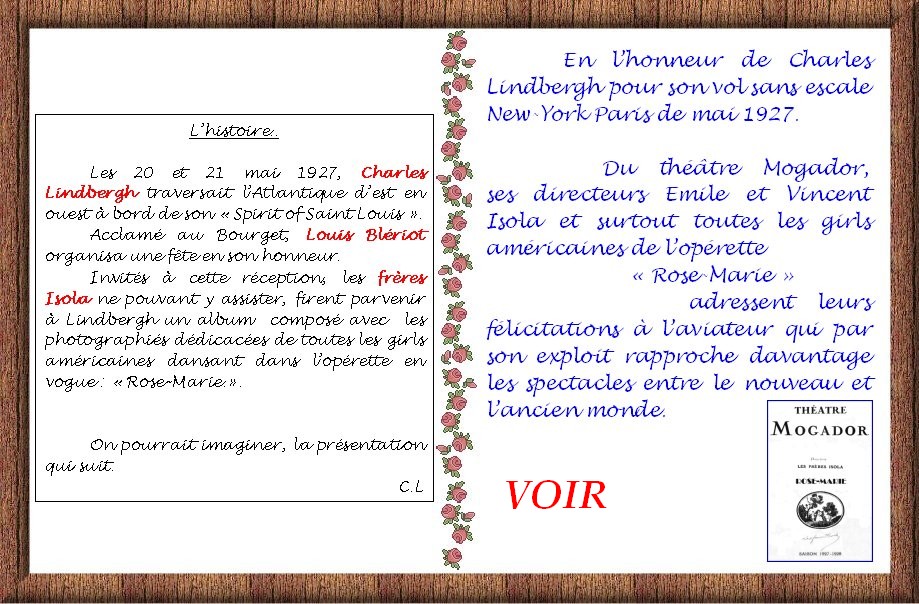 L'histoire.
Les 20 et 21 mai 1927, Charles
Lindbergh traversait l'Atlantique d'est en
ouest à bord de son « Spirit of Saint Louis ».
Acclamé au Bourget, Louis Blériot
organisa une fête en son honneur.
Invités à cette réception, les frères
Isola ne pouvant y assister, firent parvenir
à Lindbergh un album composé avec les
photographiés dédicacées de toutes les girls
américaines dansant dans l'opérette en
vogue : « Rose-Marie ».
On pourrait imaginer, la présentation
qui suit.
C.L
En l'honneur de Charles
Lindbergh pour son vol sans escale
New-York Paris de mai 1927.
Du théâtre Mogador,
ses directeurs Emile et Vincent
Isola et surtout toutes les girls
américaines de l'opérette
« Rose-Marie »
adressent leurs
félicitations à l'aviateur qui par
son exploit rapproche davantage
les spectacles entre le nouveau et
l'ancien monde.
VOIR
THÉATRE
MOGADOR
LES FRÈRES ISOLA
ROSE-MARIE